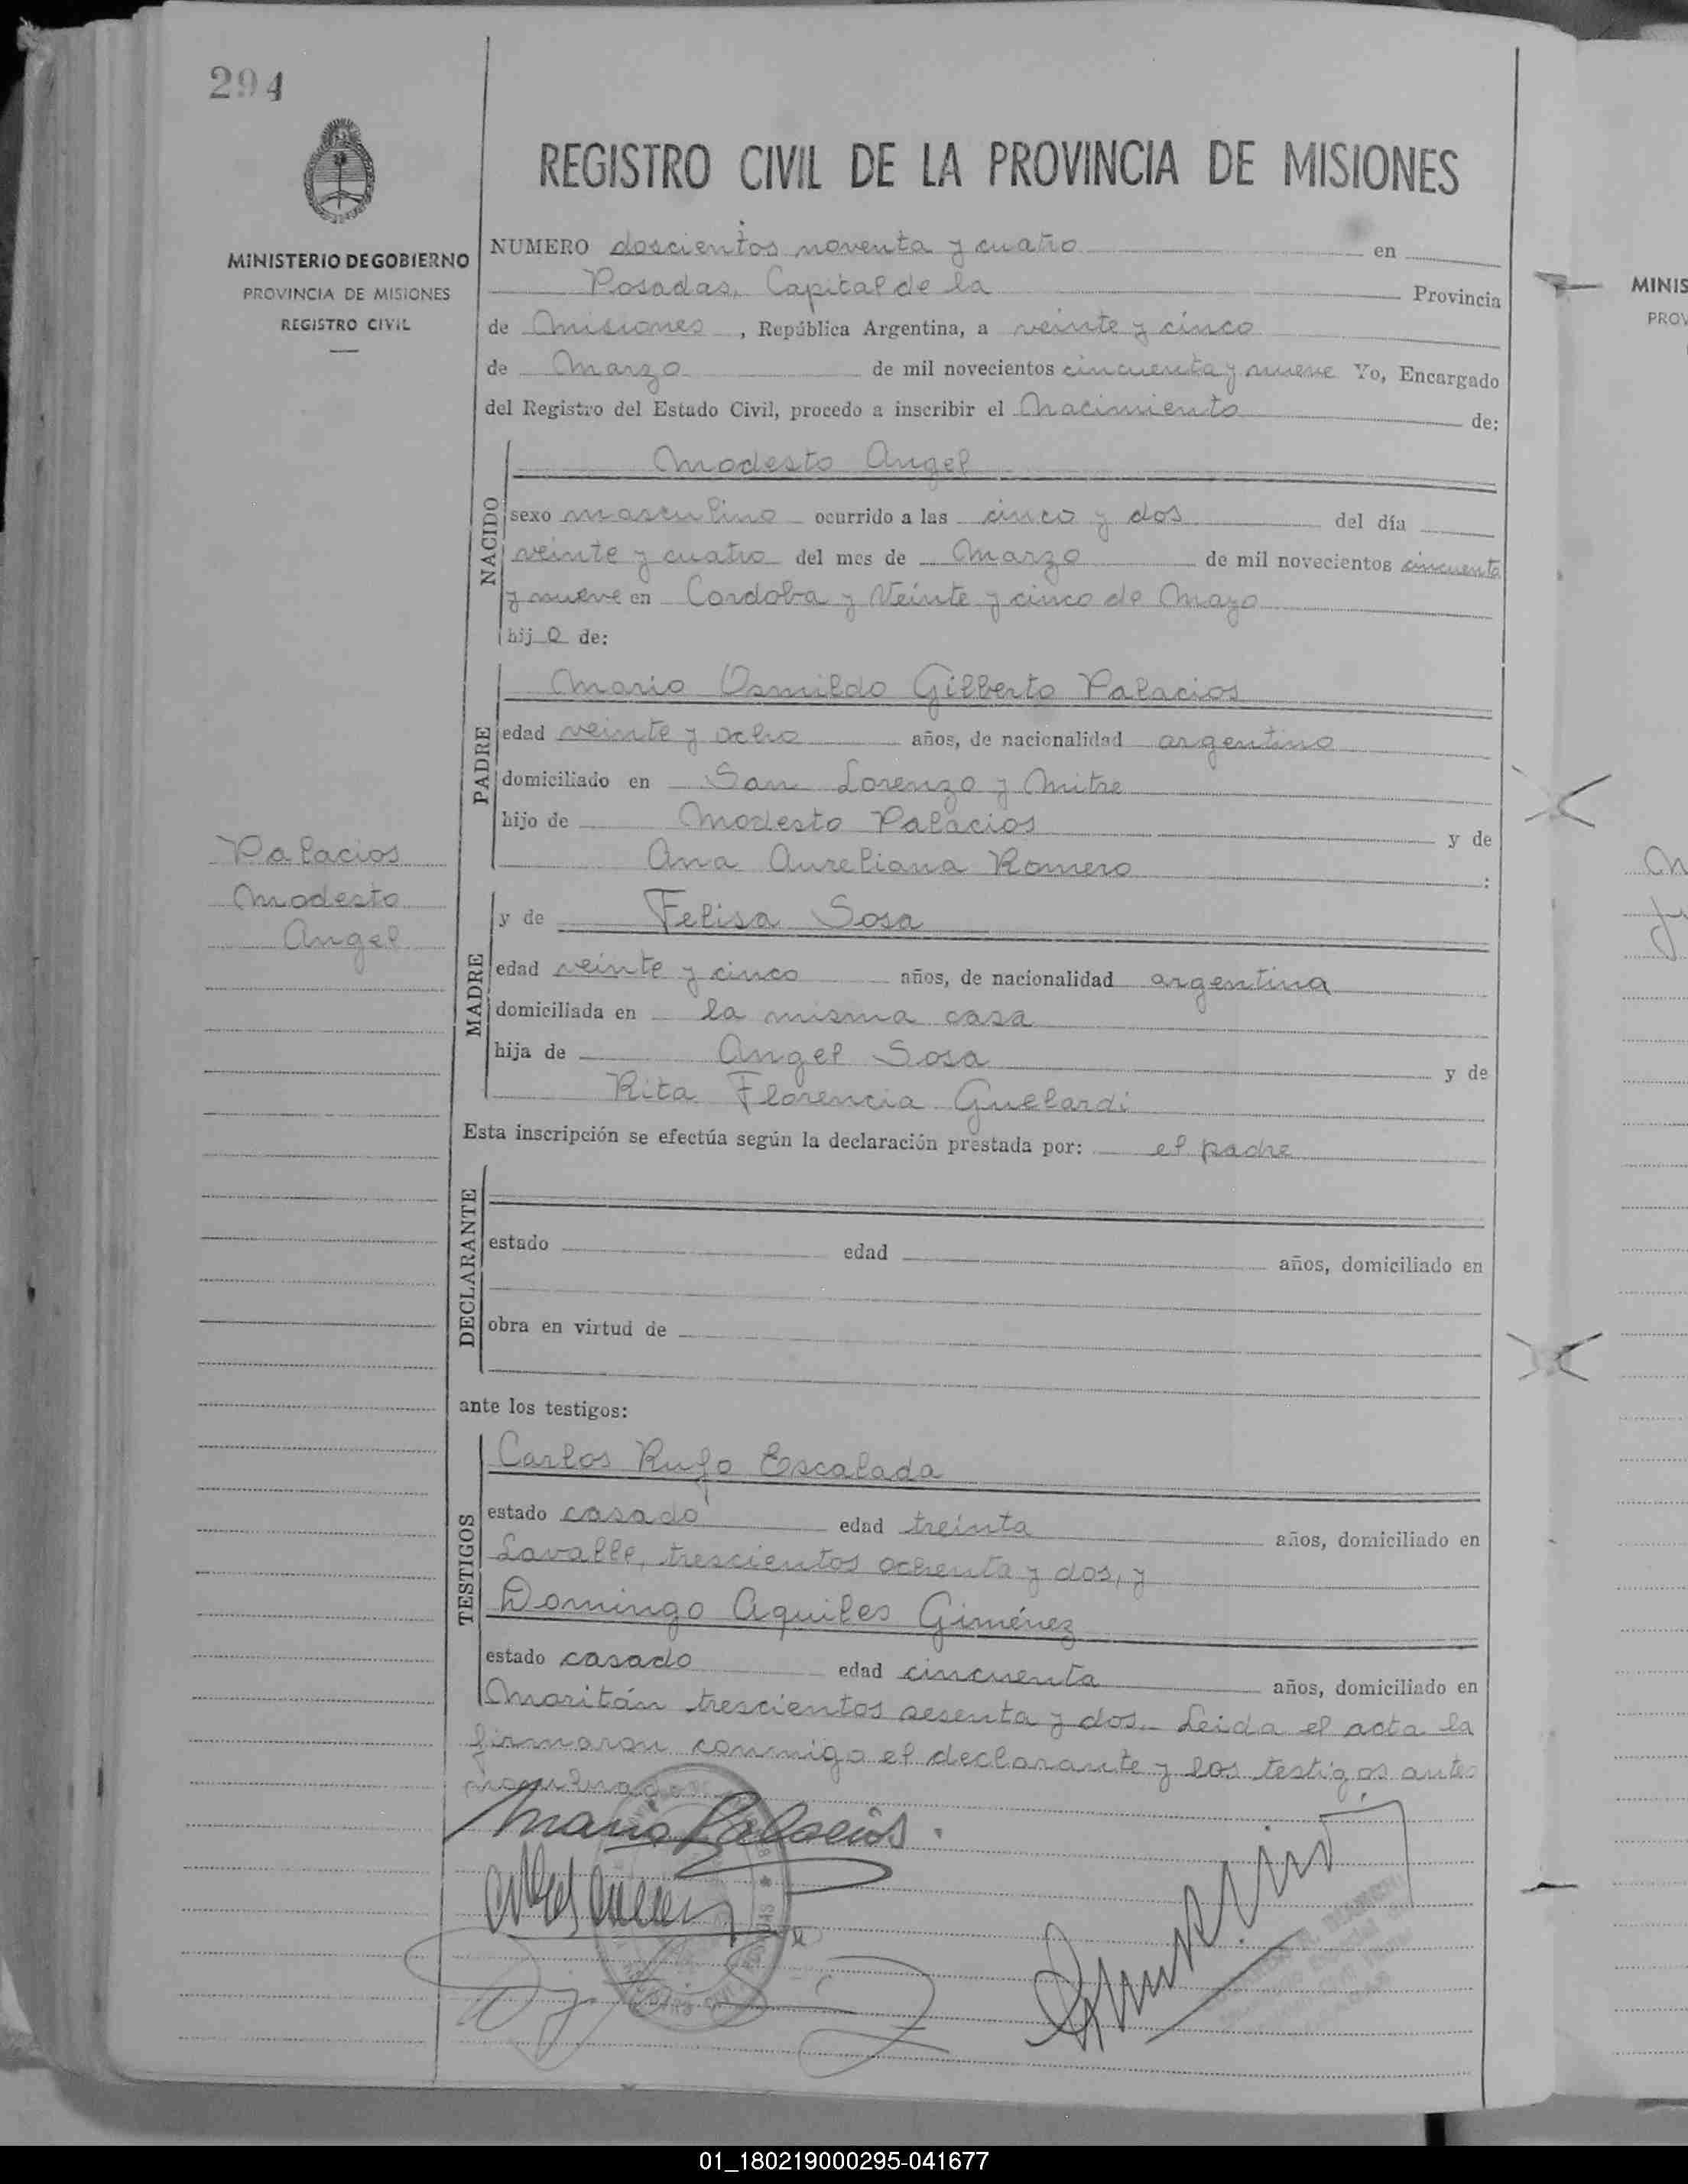 294
REGISTRO CIVIL DE LA PROVINCIA DE MISIONES
MINISTERIO DE GOBIERNO
PROVINCIA DE MISIONES
REGISTRO CIVIL
NUMERO doscientos noventa y cuatro en
Posadas, Capital de la Provincia
de Misiones, República Argentina, a veinte y cinco
de Marzo de mil novecientos cincuenta y nueve Yo, Encargado
del Registro del Estado Civil, procedo a inscribir el Nacimiento de:
NACIDO
Modesto Angel
sexo masculino ocurrido a las cinco y dos del día
veinte y cuatro del mes de Marzo de mil novecientos cincuenta
y nueve en Cordoba y Veinte y cinco de Mayo
hijo de:
PADRE
Mario Osmildo Gilberto Palacios
edad veinte y ocho años, de nacionalidad argentino
domiciliado en San Lorenzo y Mitre
hijo de Modesto Palacios y de
Ana Aureliana Romero :
Palacios
Modesto
Angel
MADRE
y de Felisa Sosa
edad veinte y cinco años, de nacionalidad argentina
domiciliada en la misma casa
hija de Angel Sosa y de
Rita Florencia Guelardi
Esta inscripción se efectúa según la declaración prestada por: el padre
DECLARANTE
estado edad años, domiciliado en
obra en virtud de
ante los testigos:
TESTIGOS
Carlos Rufo Escalada
estado casado edad treinta años, domiciliado en
Lavalle, trescientos ochenta y dos, y
Domingo Aquiles Giménez
estado casado edad cincuenta años, domiciliado en
Moritán trescientos sesenta y dos. Leida el acta la
firmaron conmigo el declarante y los testigos antes
Mario Palacios.
MINIS
PROV
01_180219000295-041677